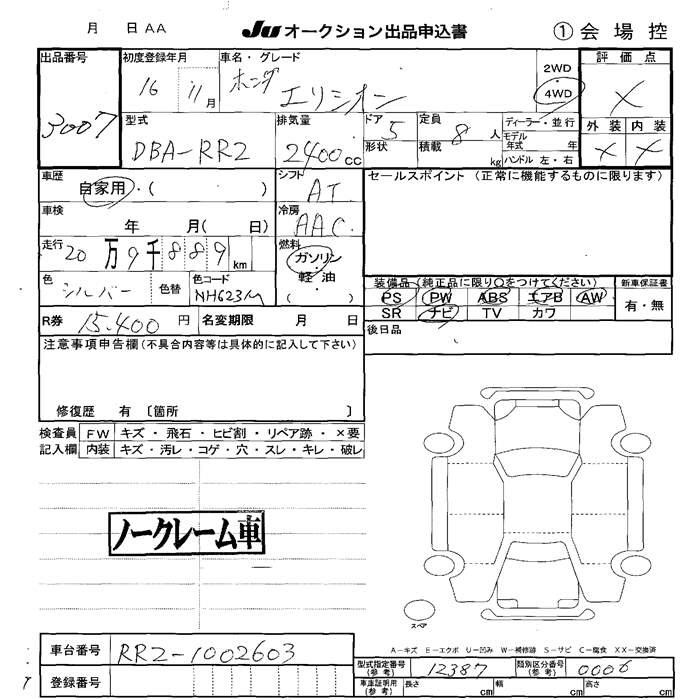 月 日 AA JU オークション出品申込書 ① 会場控
出品番号 初度登録年月 車名・グレード 2WD 評価点
3007 16 11月 ホンダ エリシオン ・ 4WD X
型式 排気量 ドア 5 定員 8 人 ディーラー・並行 外装 内装
DBA-RR2 2400cc 形状 積載 kg モデル年式 年 X X
ハンドル 左・右
車歴 シフト セールスポイント (正常に機能するものに限ります)
自家用・( ) AT
車検 冷房
年 月( 日) AAC
走行 20万9千889km 燃料
ガソリン
・
軽・油
色 シルバー 色替 色コード NH623M
装備品(純正品に限り○をつけてください) 新車保証書
PS PW ABS エアB AW 有・無
SR ナビ TV カワ
R券 15,400 円 名変期限 月 日
後日品
注意事項申告欄(不具合内容等は具体的に記入して下さい)
修復歴 有 〔箇所 〕
検査員 FW キズ・飛石・ヒビ割・リペア跡・×要
記入欄 内装 キズ・汚レ・コゲ・穴・スレ・キレ・破レ
ノークレーム車
スペア
A-キズ E-エクボ U-凹み W-補修跡 S-サビ C-腐食 XX-交換済
車台番号 RR2-1002603
型式指定番号(参考) 12387 類別区分番号(参考) 0006
登録番号
車庫証明用(参考) 長さ cm 幅 cm 高さ cm